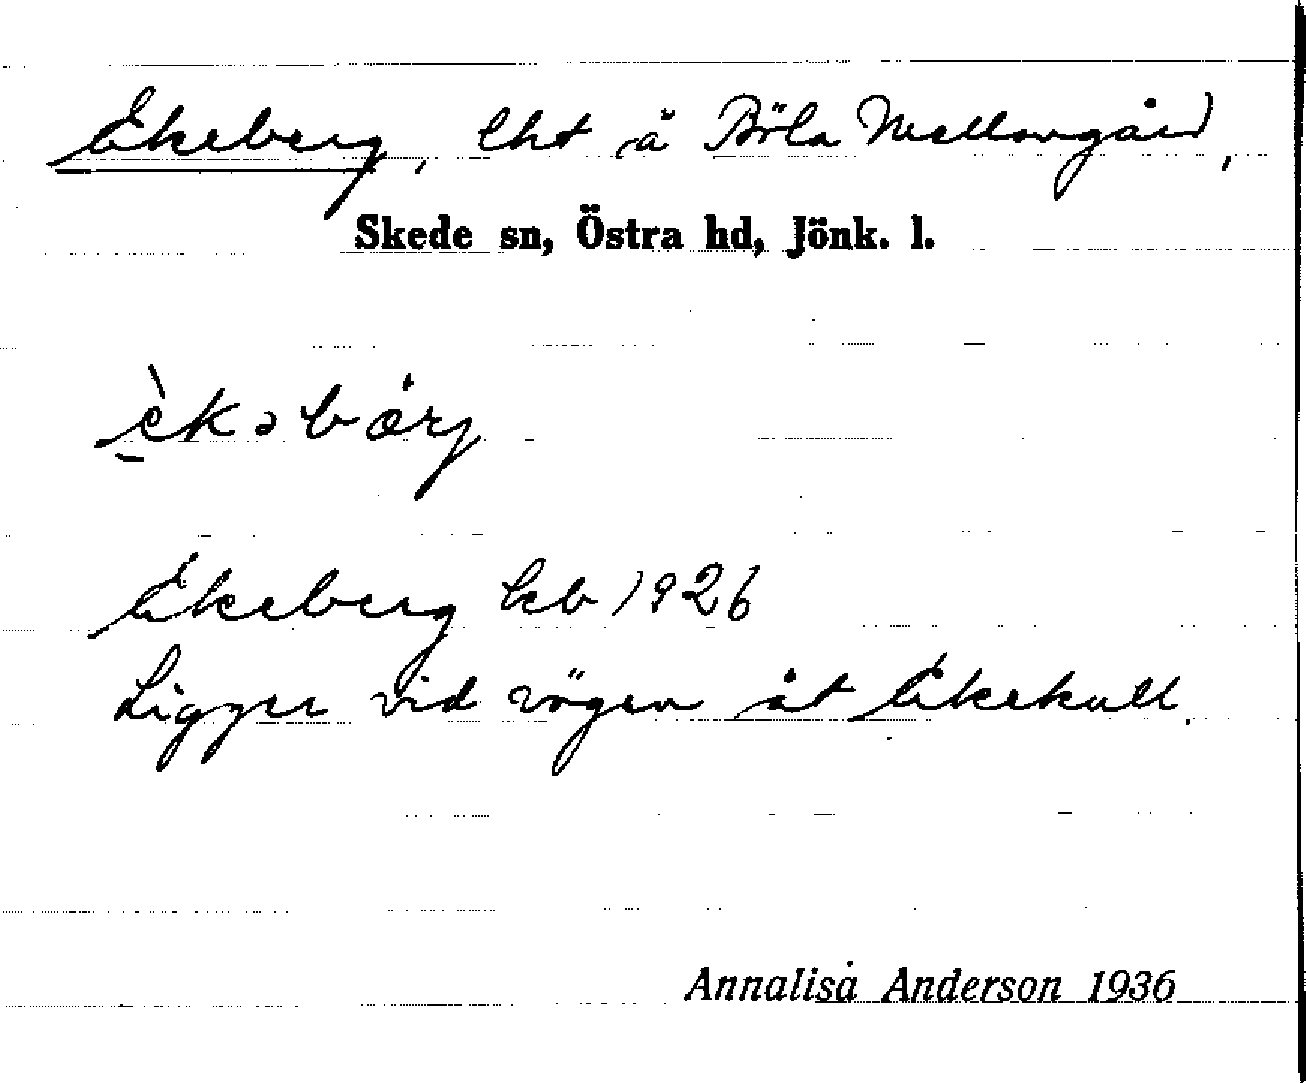 Ekeberg, lht å Böla Mellangård,
Skede sn, Östra hd, Jönk. l.
è̠kəbárj
Ekeberg kb 1926
Ligger vid vägen åt Ekekull.
Annalisa Anderson 1936